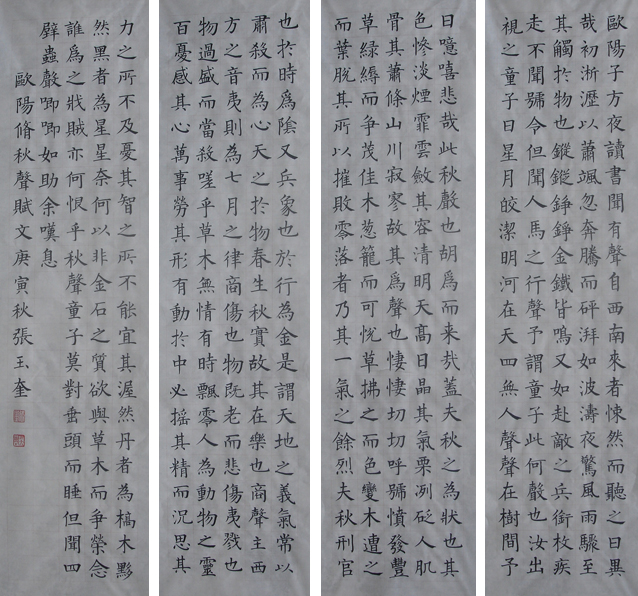 歐陽子方夜讀書聞有聲自西南來者悚然而聽之曰異
哉初淅瀝以蕭颯忽奔騰而砰湃如波濤夜驚風雨驟至
其觸於物也鏦鏦錚錚金鐵皆鳴又如赴敵之兵銜枚疾
走不聞號令但聞人馬之行聲予謂童子此何聲也汝出
視之童子曰星月皎潔明河在天四無人聲聲在樹間予
曰噫嘻悲哉此秋聲也胡爲而来哉蓋夫秋之为狀也其
色慘淡煙霏雲斂其容清明天高日晶其氣栗冽砭人肌
骨其蕭條山川寂寥故其爲聲也悽悽切切呼號憤發豐
草綠縟而爭茂佳木葱籠而可悅草拂之而色變木遭之
而葉脫其所以摧敗零落者乃其一氣之餘烈夫秋刑官
也於時爲陰又兵象也於行為金是謂天地之義氣常以
肅殺而為心天之於物春生秋實故其在樂也商聲主西
方之音夷則為七月之律商傷也物既老而悲傷夷戮也
物過盛而當殺嗟乎草木無情有時飄零人為動物之靈
百憂感其心萬事勞其形有動於中必摇其精而況思其
力之所不及憂其智之所不能宜其渥然丹者為槁木黟
然黑者為星星奈何以非金石之質欲與草木而爭榮念
誰爲之戕賊亦何恨乎秋聲童子莫對垂頭而睡但聞四
壁蟲聲唧唧如助余嘆息
歐陽脩秋聲賦文庚寅秋張玉奎